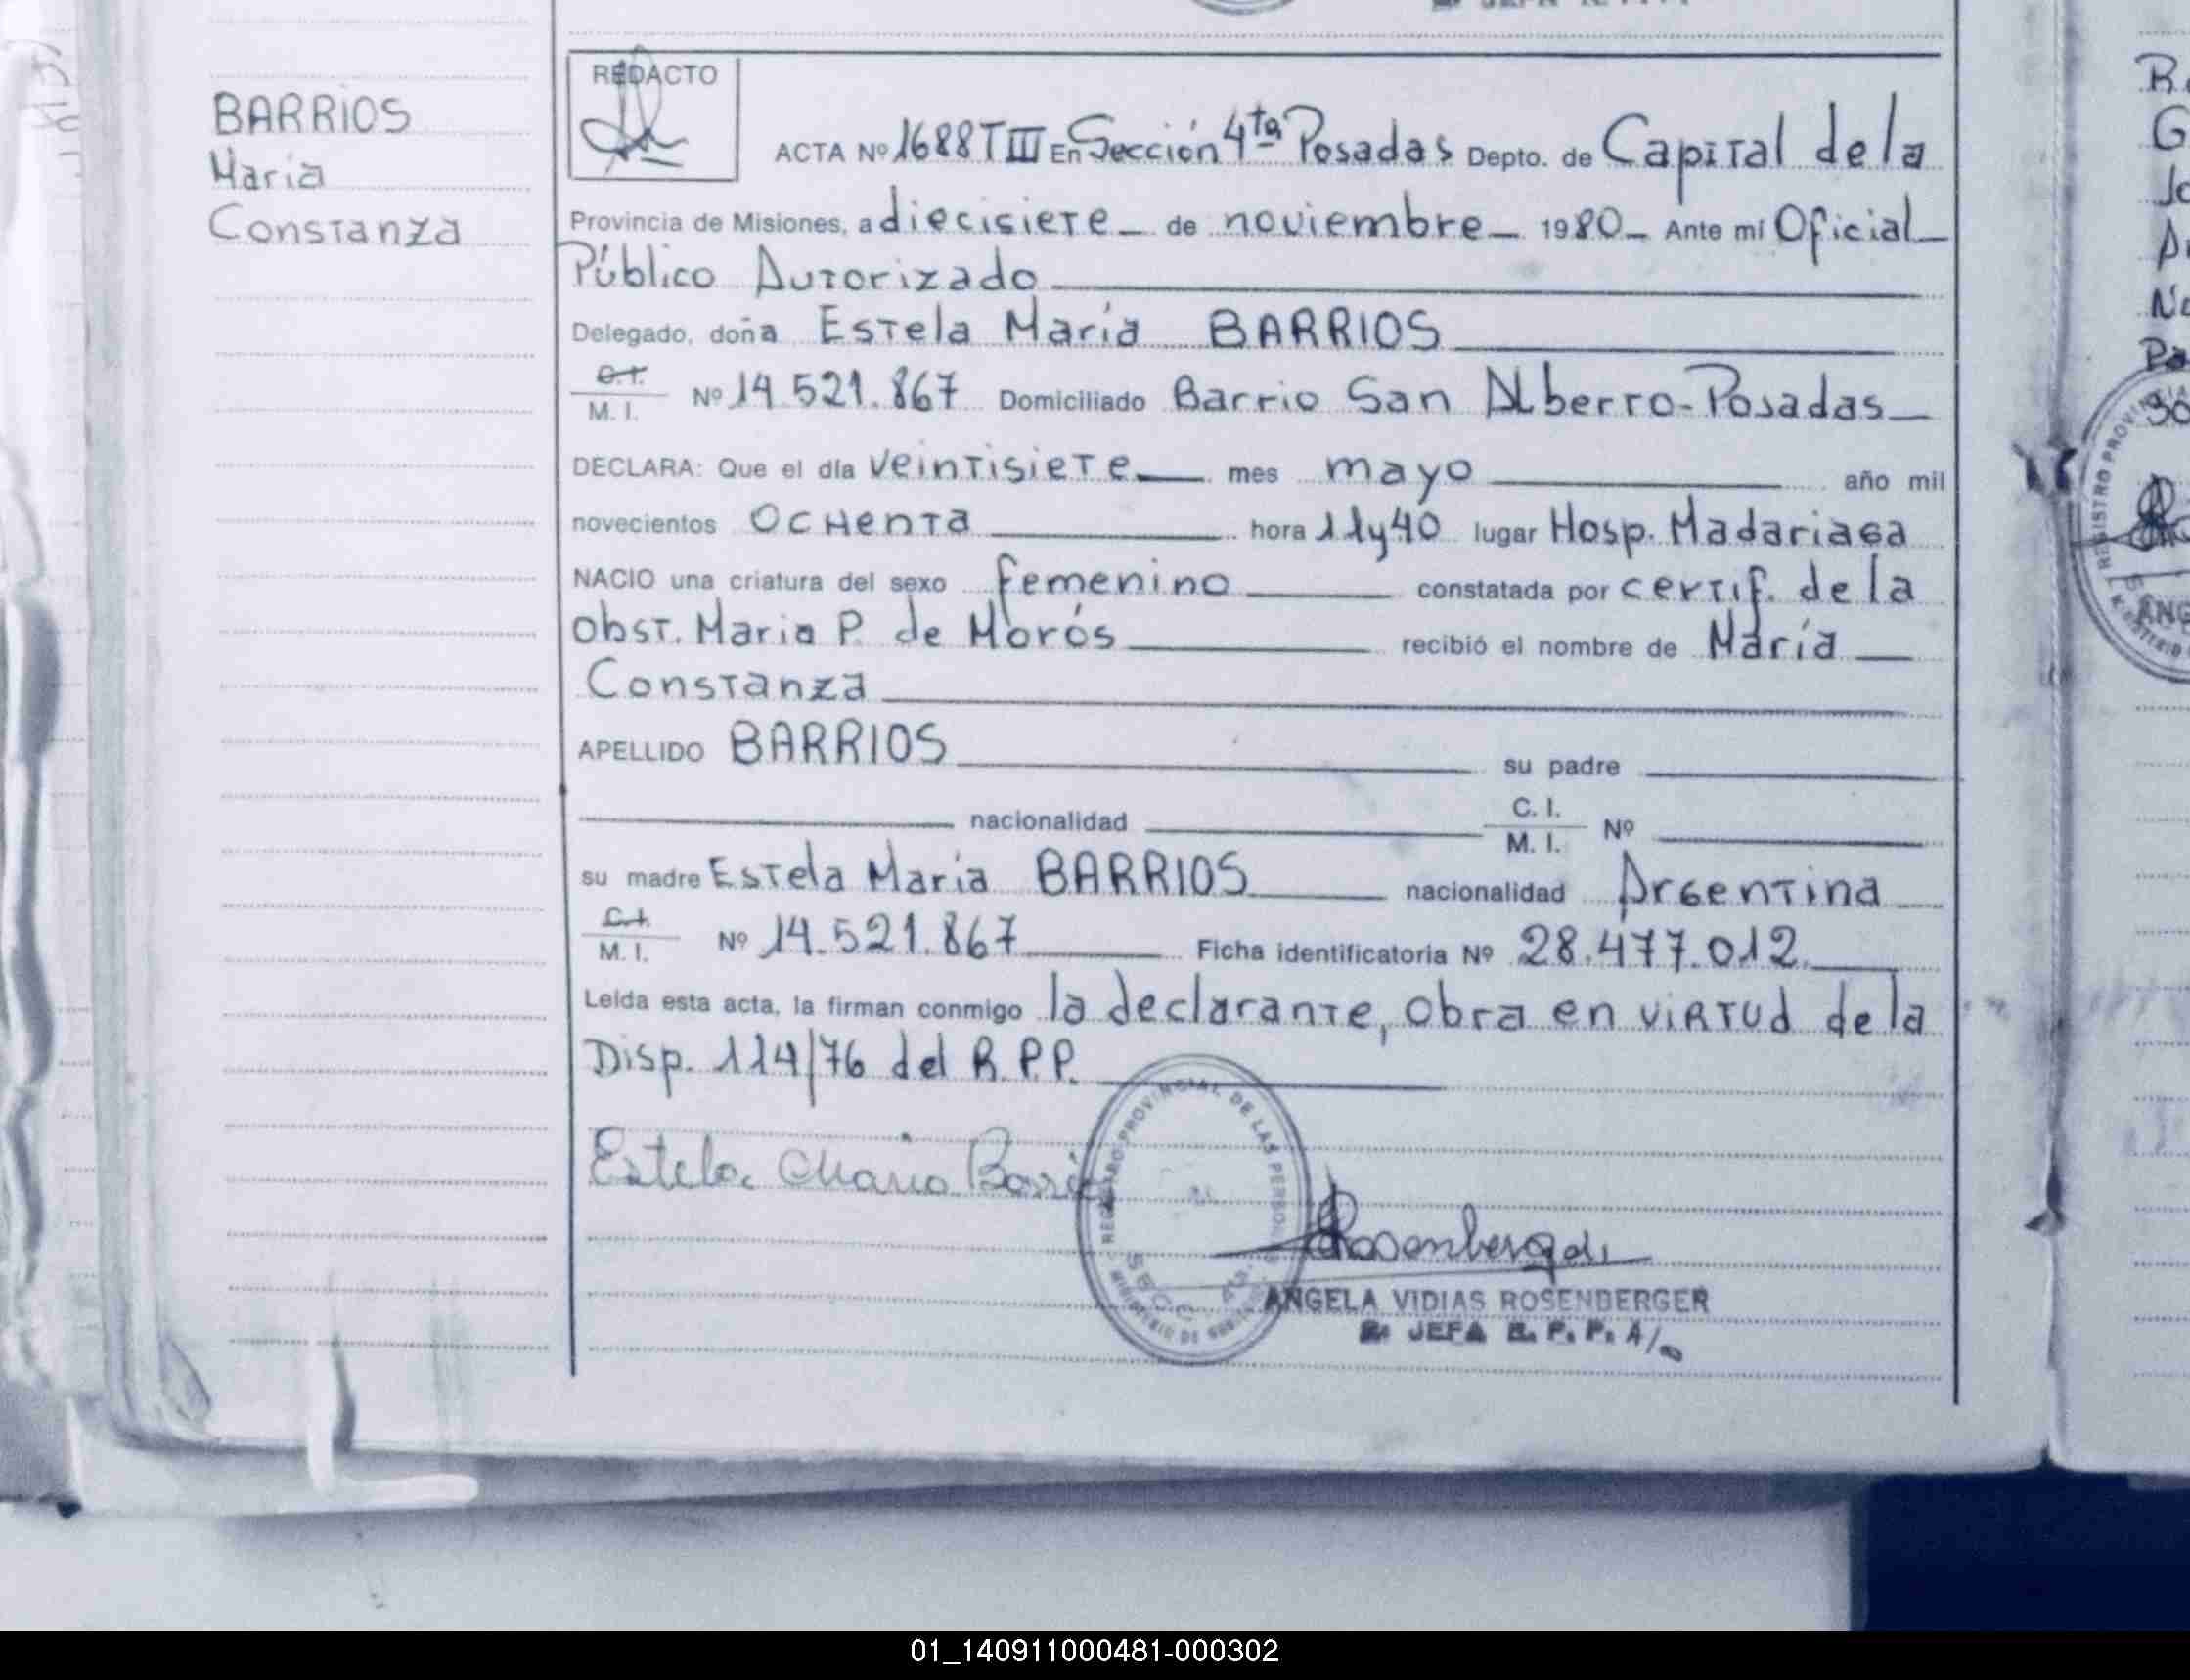 BARRIOS
María
Constanza
REDACTO
ACTA Nº 1688 T III En Sección 4ta Posadas Depto. de Capital de la
Provincia de Misiones, a diecisiete de noviembre 1980 Ante mí Oficial
Público Autorizado
Delegado, doña Estela María BARRIOS
C.I.
M. I. Nº 14.521.867 Domiciliado Barrio San Alberto-Posadas
DECLARA: Que el día veintisiete mes mayo año mil
novecientos ochenta hora 11y40 lugar Hosp. Madariaga
NACIO una criatura del sexo femenino constatada por certif. de la
obst. Maria P. de Morós recibió el nombre de María
Constanza
APELLIDO BARRIOS su padre
nacionalidad C. I.
M. I. Nº
su madre Estela María BARRIOS nacionalidad Argentina
C.I.
M. I. Nº 14.521.867 Ficha identificatoria Nº 28.477.012
Leída esta acta, la firman conmigo la declarante, obra en virtud de la
Disp. 114/76 del R.P.P.
Estela Maria Barrios
REGISTRO PROVINCIAL DE LAS PERSONAS
SECC. 4ta.
MINISTERIO DE
Rosenberger
ANGELA VIDIAS ROSENBERGER
JEFA R. P. P. A/
REGISTRO PROVIN
01_140911000481-000302